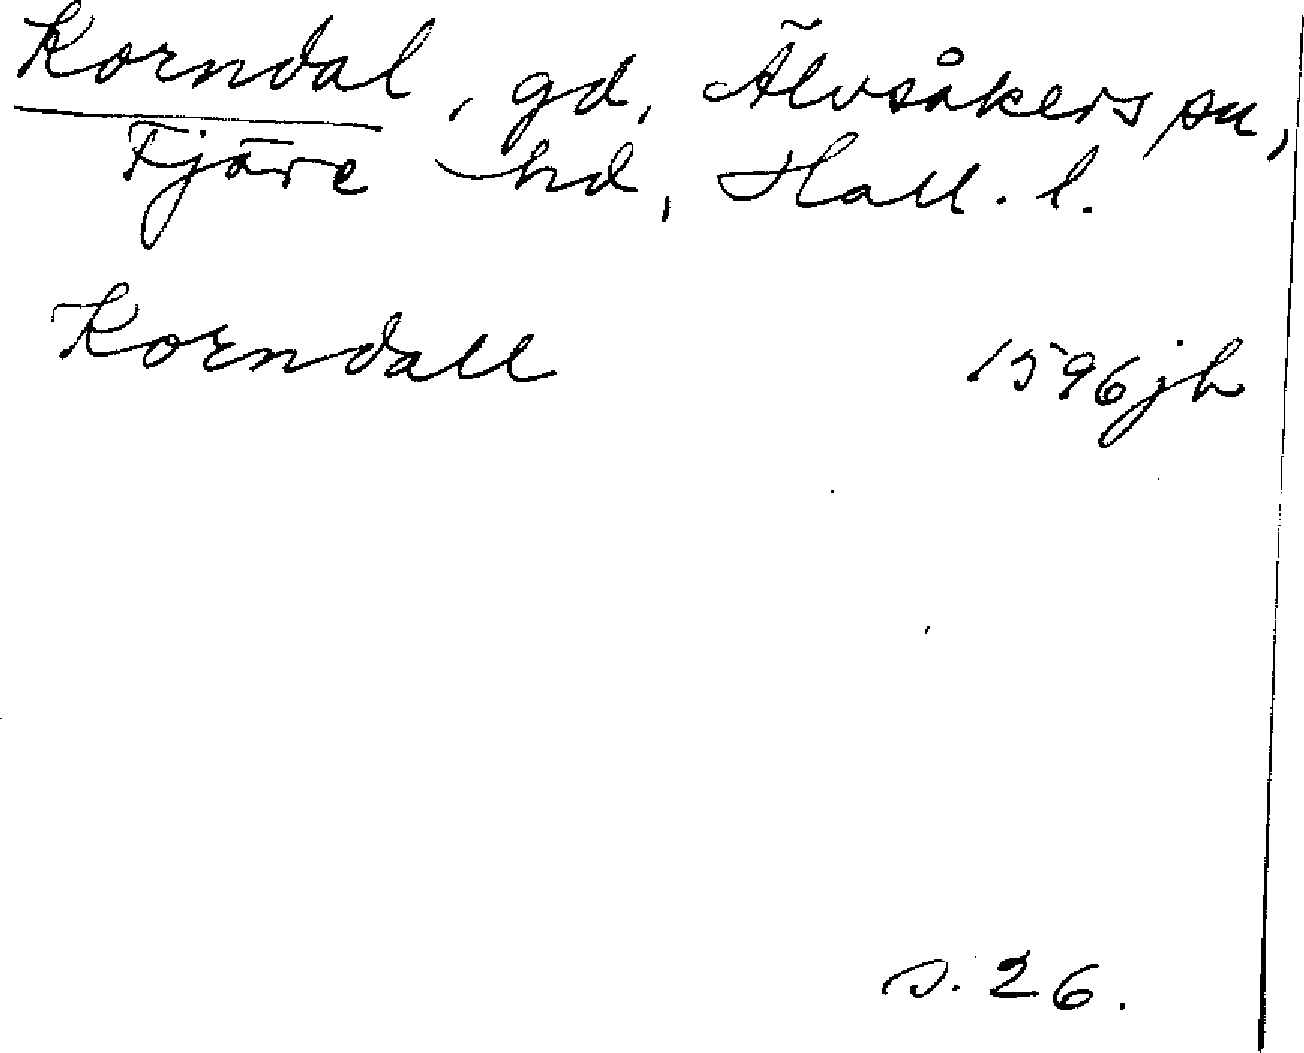 Korndal, gd, Älvsåkers sn,
Fjäre hd, Hall. l.
Korndall 1596 jb
s. 26.